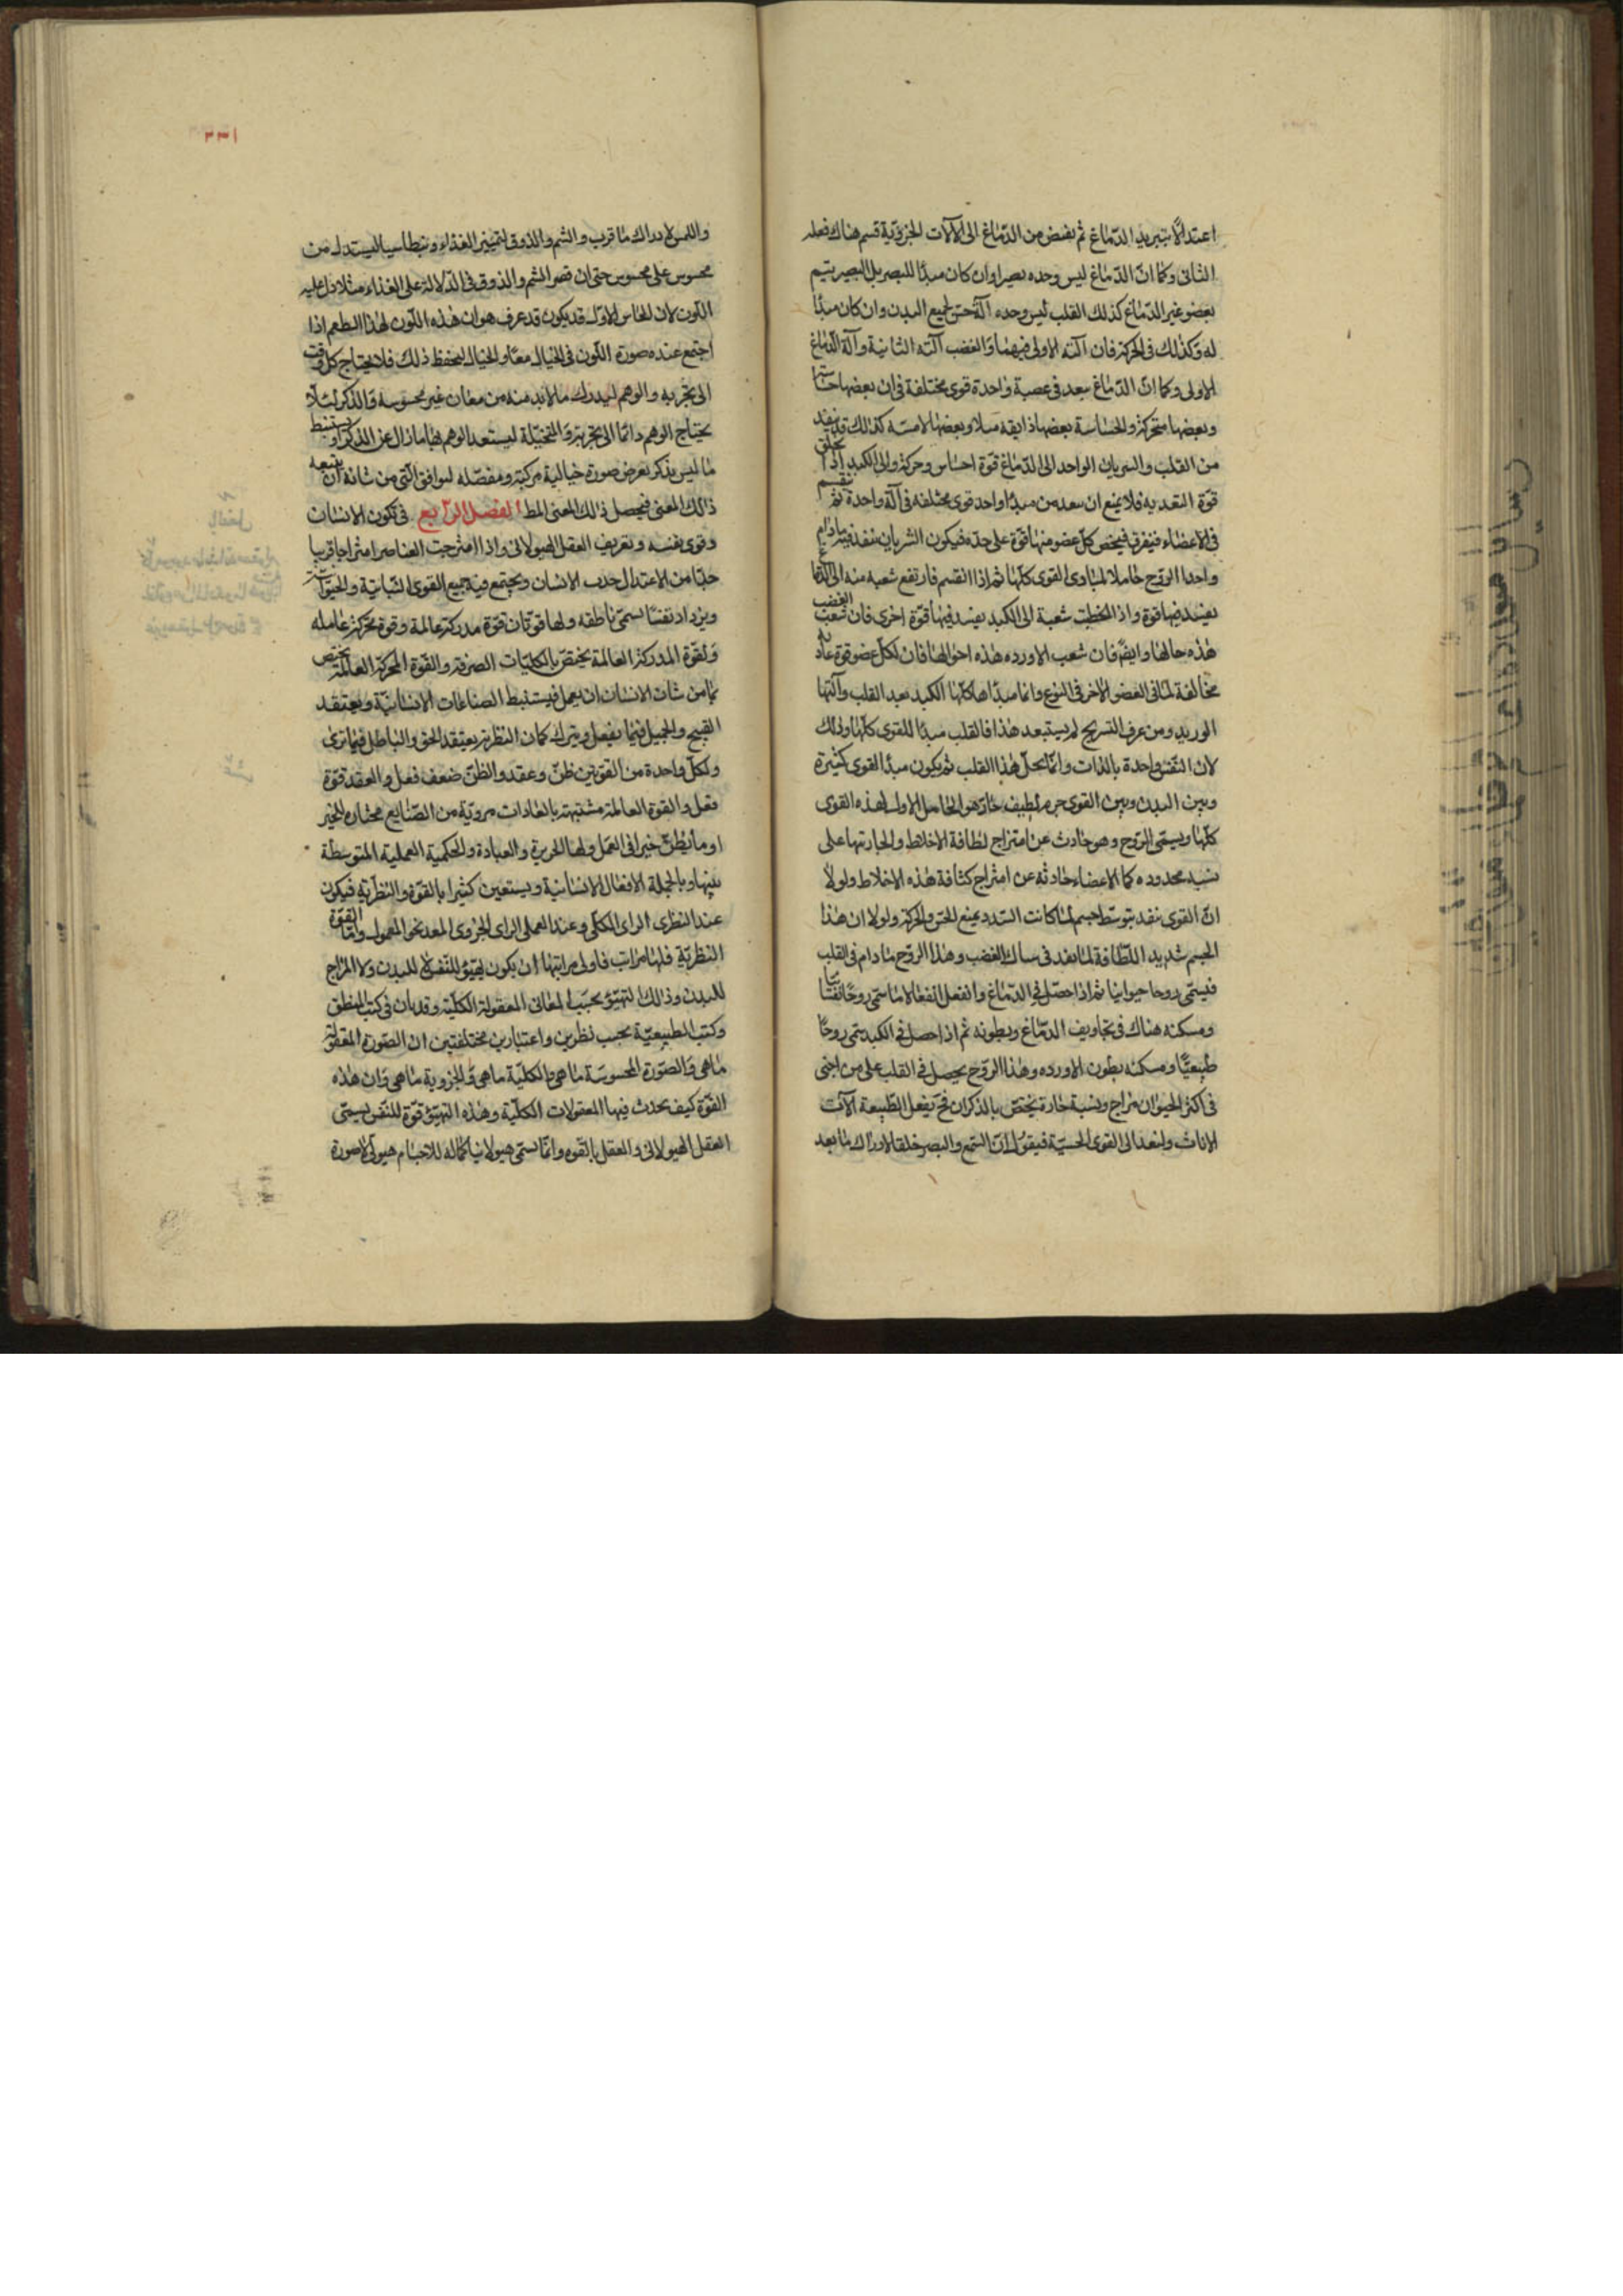 اعتدالًا بتبريد الدّماغ ثم يفيض من الدّماغ الى الآلات الجزويّة قسم هناك فعله
الثانى وكما انّ الدّماغ ليس وحده بصيرا وان كان مبدًا للبصر بل البصير يتيم
بعضو غير الدّماغ كذلك القلب ليس وحده آلة حسّ لجميع البدن وان كان مبدًا
له وكذلك فى الحركة فان آلته الاولى فيهما والغضب آلته الثانية وآلة الدّماغ
الاولى وكما انّ الدّماغ ينفد فى عصبة واحدة قوى مختلفة فان بعضها حسّاسّها
وبعضها متحركة والحسّاسة بعضها ذايقه مثلا وبعضها لامسه كذلك قد ينفد
من القلب والشريان الواحد الى الدّماغ قوّة احساس وحركة والى الكبد اذا يخلق
قوّة التغديه فلا يمنع ان ينفد من مبدًا واحد قوى مختلفه فى آلة واحدة ثم تنقسم
فى الاعضاء فيتفرق فيختص كلّ عضو منها قوّة على حدّه فيكون الشريان ينفد فيه مادام
واحدا الرّوح حاملا لمبادى القوى كلّها ثم اذا انقسم فارتفع شعبه منه الى الدّماغ
يفيد فيها قوة واذا انحطّت شعبة الى الكبد يفيد فيها قوّة اخرى فان شعب الغضب
هذه حالها وايضً فان شعب الاورده هذه احوالها فان لكلّ عضو قوة غاديه
مخالفة لما فى العضو الاخر فى النوع وانما مبداها كلّها الكبد بعد القلب وآلتها
الوريد ومن عرف التشريح لم يستبعد هذا فالقلب مبدًا للقوى كلّها وذلك
لان النّفس واحدة بالذات وانّما تحلّ هذا القلب ثم يكون مبدأ القوى كثيرة
وبين البدن وبين القوى جرم لطيف حارّ هو الحامل الاول لهذه القوى
كلّها ويسمى الرّوح وهو حادث عن امتزاج لطافة الاخلاط والحبارتها على
نسبه محدوده كما الاعضاء حادثه عن امتزاج كثافة هذه الاخلاط ولولا
انّ القوى ينفد بتوسّط جسم لما كانت السّدد يمنع الحسّ والحركة ولولا ان هذا
الجسم شديد اللّطافة لما نفد فى مسالك الغضب وهذا الرّوح ما دام فى القلب
فيسمّى روحا حيوانيا ثم اذا حصل فى الدّماغ وانفعل انفعالا ما سمّى روحًا نفسانيّا
ومسكنه هناك فى تجاويف الدّماغ وبطونه ثم اذا حصل فى الكبد سمّى روحًا
طبيعيًّا ومسكنه بطون الاورده وهذا الرّوح يحصل فى القلب على من اجنى
فى اكثر الحيوان مزاج ونسبة حارة يختصّ بالذكران فحّ يفعل الطّبيعة الآت
الاناث ولنعد الى القوى الحسيّة فيقول انّ السّمع والبصر خلقا لادراك ما بعد
١٣٣
واللمس لادراك ما قرب والشم والذوق لتمييز الغذاء وبنطاسيا ليستدل من
محسوس على محسوس حتى ان قصر الشم والذوق فى الدّلالة على الغذاء مثلا دل عليه
اللّون لان الحاس الاوّل قد يكون قد عرف هو ان هذه اللّون لهذا الطعم اذا
اجتمع عنده صورة اللّون فى الخيال معًا والخيال ليحفظ ذلك فلا يحتاج كل وقت
الى تجربه والوهم ليدرك ما لابد منه من معان غير محسوسه والذكر لئلا
يحتاج الوهم دائمًا الى تجربة والتخيّلة ليستعد الوهم بها ما زال عن الذكر او يستنبط
ما ليس يذكر بعرض صورة خيالية مركبة ومفصّله ليوافق الّتى من شانه ان يتبعه
ذلك المعنى فيحصل ذلك المعنى المط الفصل الرّابع فى تكون الانسان
وقوى نفسه وتعريف العقل الهيولانى واذا امتزجت العناصر امتزاجا قريبا
جدّا من الاعتدال حدث الانسان ويجتمع فيه جميع القوى النّباتيّة والحيوانيّة
ويزداد نفسًا تسمّى ناطقه ولها قوّتان قوّة مدركة عالمة وقوة محرّكة عامله
والقوة المدركة العالمة يختصّ بالكليّات الصرفة والقوّة المحركة العالمة يختصّ
بما من شان الانسان ان يعمل فيستنبط الصناعات الانسانيّة ويعتقد
القبيح والجميل فيما يفعل ويترك كما ان النظرية يعتقد الحق والباطل فيما ترى
ولكلّ واحدة من القوّتين ظنّ وعقد والظنّ ضعف فعل والعقد قوّة
فعل والقوة العالمة متشبهة بالعادات مرويّة من الصّنايع مختاره للخير
او ما يُظنّ خيرا فى العمل ولها الجربزة والعبادة والحكمية العمليه المتوسّطة
بينها وبالجملة الافعال الانسانية ويستعين كثيرا بالقوّة والنّظريّة فيكون
عند النظرى الراى الكلّى وعند العملى الراى الجزوى المعد نحو المعمول وامّا القوّة
النظريّة فلها مراتب فاولى مراتبها ان يكون تهيّؤ للنّفس لا للبدن ولا المزاج
للبدن وذلك التهيّؤ بحسب المعانى المعقولة الكلّيّه وقد بان فى كتب المنطق
وكتب الطبيعيّة بحسب نظرين واعتبارين مختلفتين ان الصّورة المعقولة
ما هى والصّورة المحسوسة ما هى والكليّة ما هى والجزوية ما هى وان هذه
القوّة كيف يحدث فيها المعقولات الكلّية وهذه التهيّؤ قوّة للنّفس يسمّى
العقل الهيولانى والعقل بالقوه وانّما يسمّى هيولانيّا لانّ الاجسام هيولى لا صورة